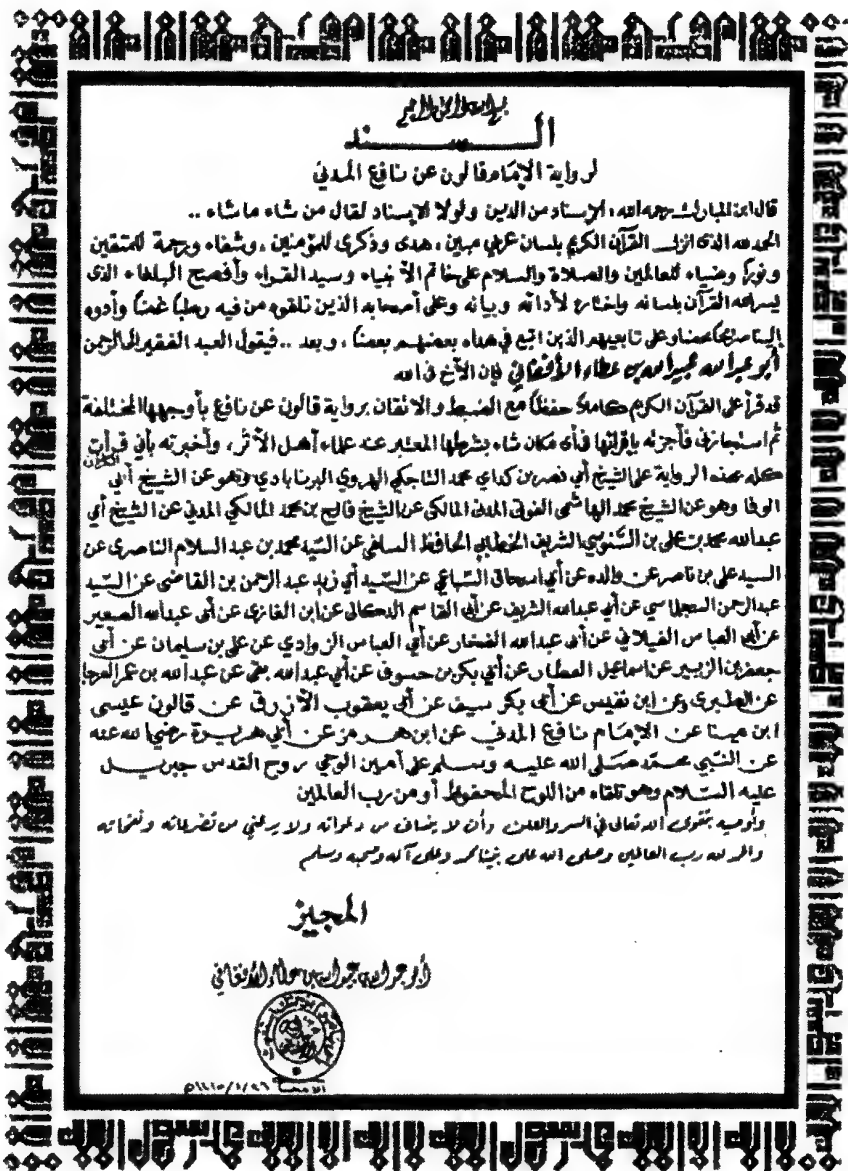 بسم الله الرحمن الرحيم
الســــــند
لرواية الإمام قالون عن نافع المدني
قال ابن المبارك رحمه الله: الإسناد من الدين ولولا الإسناد لقال من شاء ما شاء ..
الحمد لله الذي أنزل القرآن الكريم بلسان عربي مبين، هدى وذكرى للمؤمنين، وشفاء ورحمة للمتقين
ونورا وضياء للعالمين والصلاة والسلام على خاتم الأنبياء وسيد القراء وأفصح البلغاء الذي
يسر الله القرآن بلسانه واختاره لأدائه وبيانه وعلى أصحابه الذين تلقوه من فيه رطبا غضا وأدوه
إلينا وعلى تابعيهم الذين اتبع في هداه بعضهم بعضا، وبعد .. فيقول العبد الفقير إلى الرحمن
أبو عبد الله عبيد الله بن عطاء الأفغاني فإن الأخ في الله
قد قرأ علي القرآن الكريم كاملا حفظا مع الضبط والإتقان برواية قالون عن نافع بأوجهها المختلفة
ثم استجازني فأجزته بإقرائها في أي مكان شاء بشرطها المعتبر عند علماء أهل الأثر، وأخبرته بأني قرأت القرآن
كله بهذه الرواية على الشيخ أبي نصر بن كداي محمد التاجكي الهروي البرنابادي وهو عن الشيخ أبي
الوفا وهو عن الشيخ محمد الهاشمي الفوتي المدني المالكي عن الشيخ فالح بن محمد المالكي المدني عن الشيخ أبي
عبد الله محمد بن علي بن السنوسي الشريف الخطابي الحافظ السلفي عن السيد محمد بن عبد السلام الناصري عن
السيد علي بن ناصر عن والده عن أبي إسحاق السباعي عن السيد أبي زيد عبد الرحمن بن القاضي عن السيد
عبد الرحمن السجلماسي عن أبي عبد الله الشريف عن أبي القاسم الدكالي عن ابن الغازي عن أبي عبد الله الصغير
عن أبي العباس الفيلالي عن أبي عبد الله الفخار عن أبي العباس الزواوي عن علي بن سليمان عن أبي
جعفر بن الزبير عن إسماعيل العطار عن أبي بكر بن حسون عن أبي عبد الله بقي عن عبد الله بن عمر العرجا
عن الطبري وعن ابن نفيس عن أبي بكر سيف عن أبي يعقوب الأزرق عن قالون عيسى
ابن مينا عن الإمام نافع المدني عن ابن هرمز عن أبي هريرة رضي الله عنه
عن النبي محمد صلى الله عليه وسلم على أمين الوحي روح القدس جبريل
عليه السلام وهو تلقاه من اللوح المحفوظ أو من رب العالمين
وأوصيه بتقوى الله تعالى في السر والعلن وأن لا ينساني من دعواته ولا يدعني من تضرعاته
والحمد لله رب العالمين وصلى الله على نبينا محمد وعلى آله وصحبه وسلم
المجيز
أبو عبد الله عبيد الله بن عطاء الأفغاني